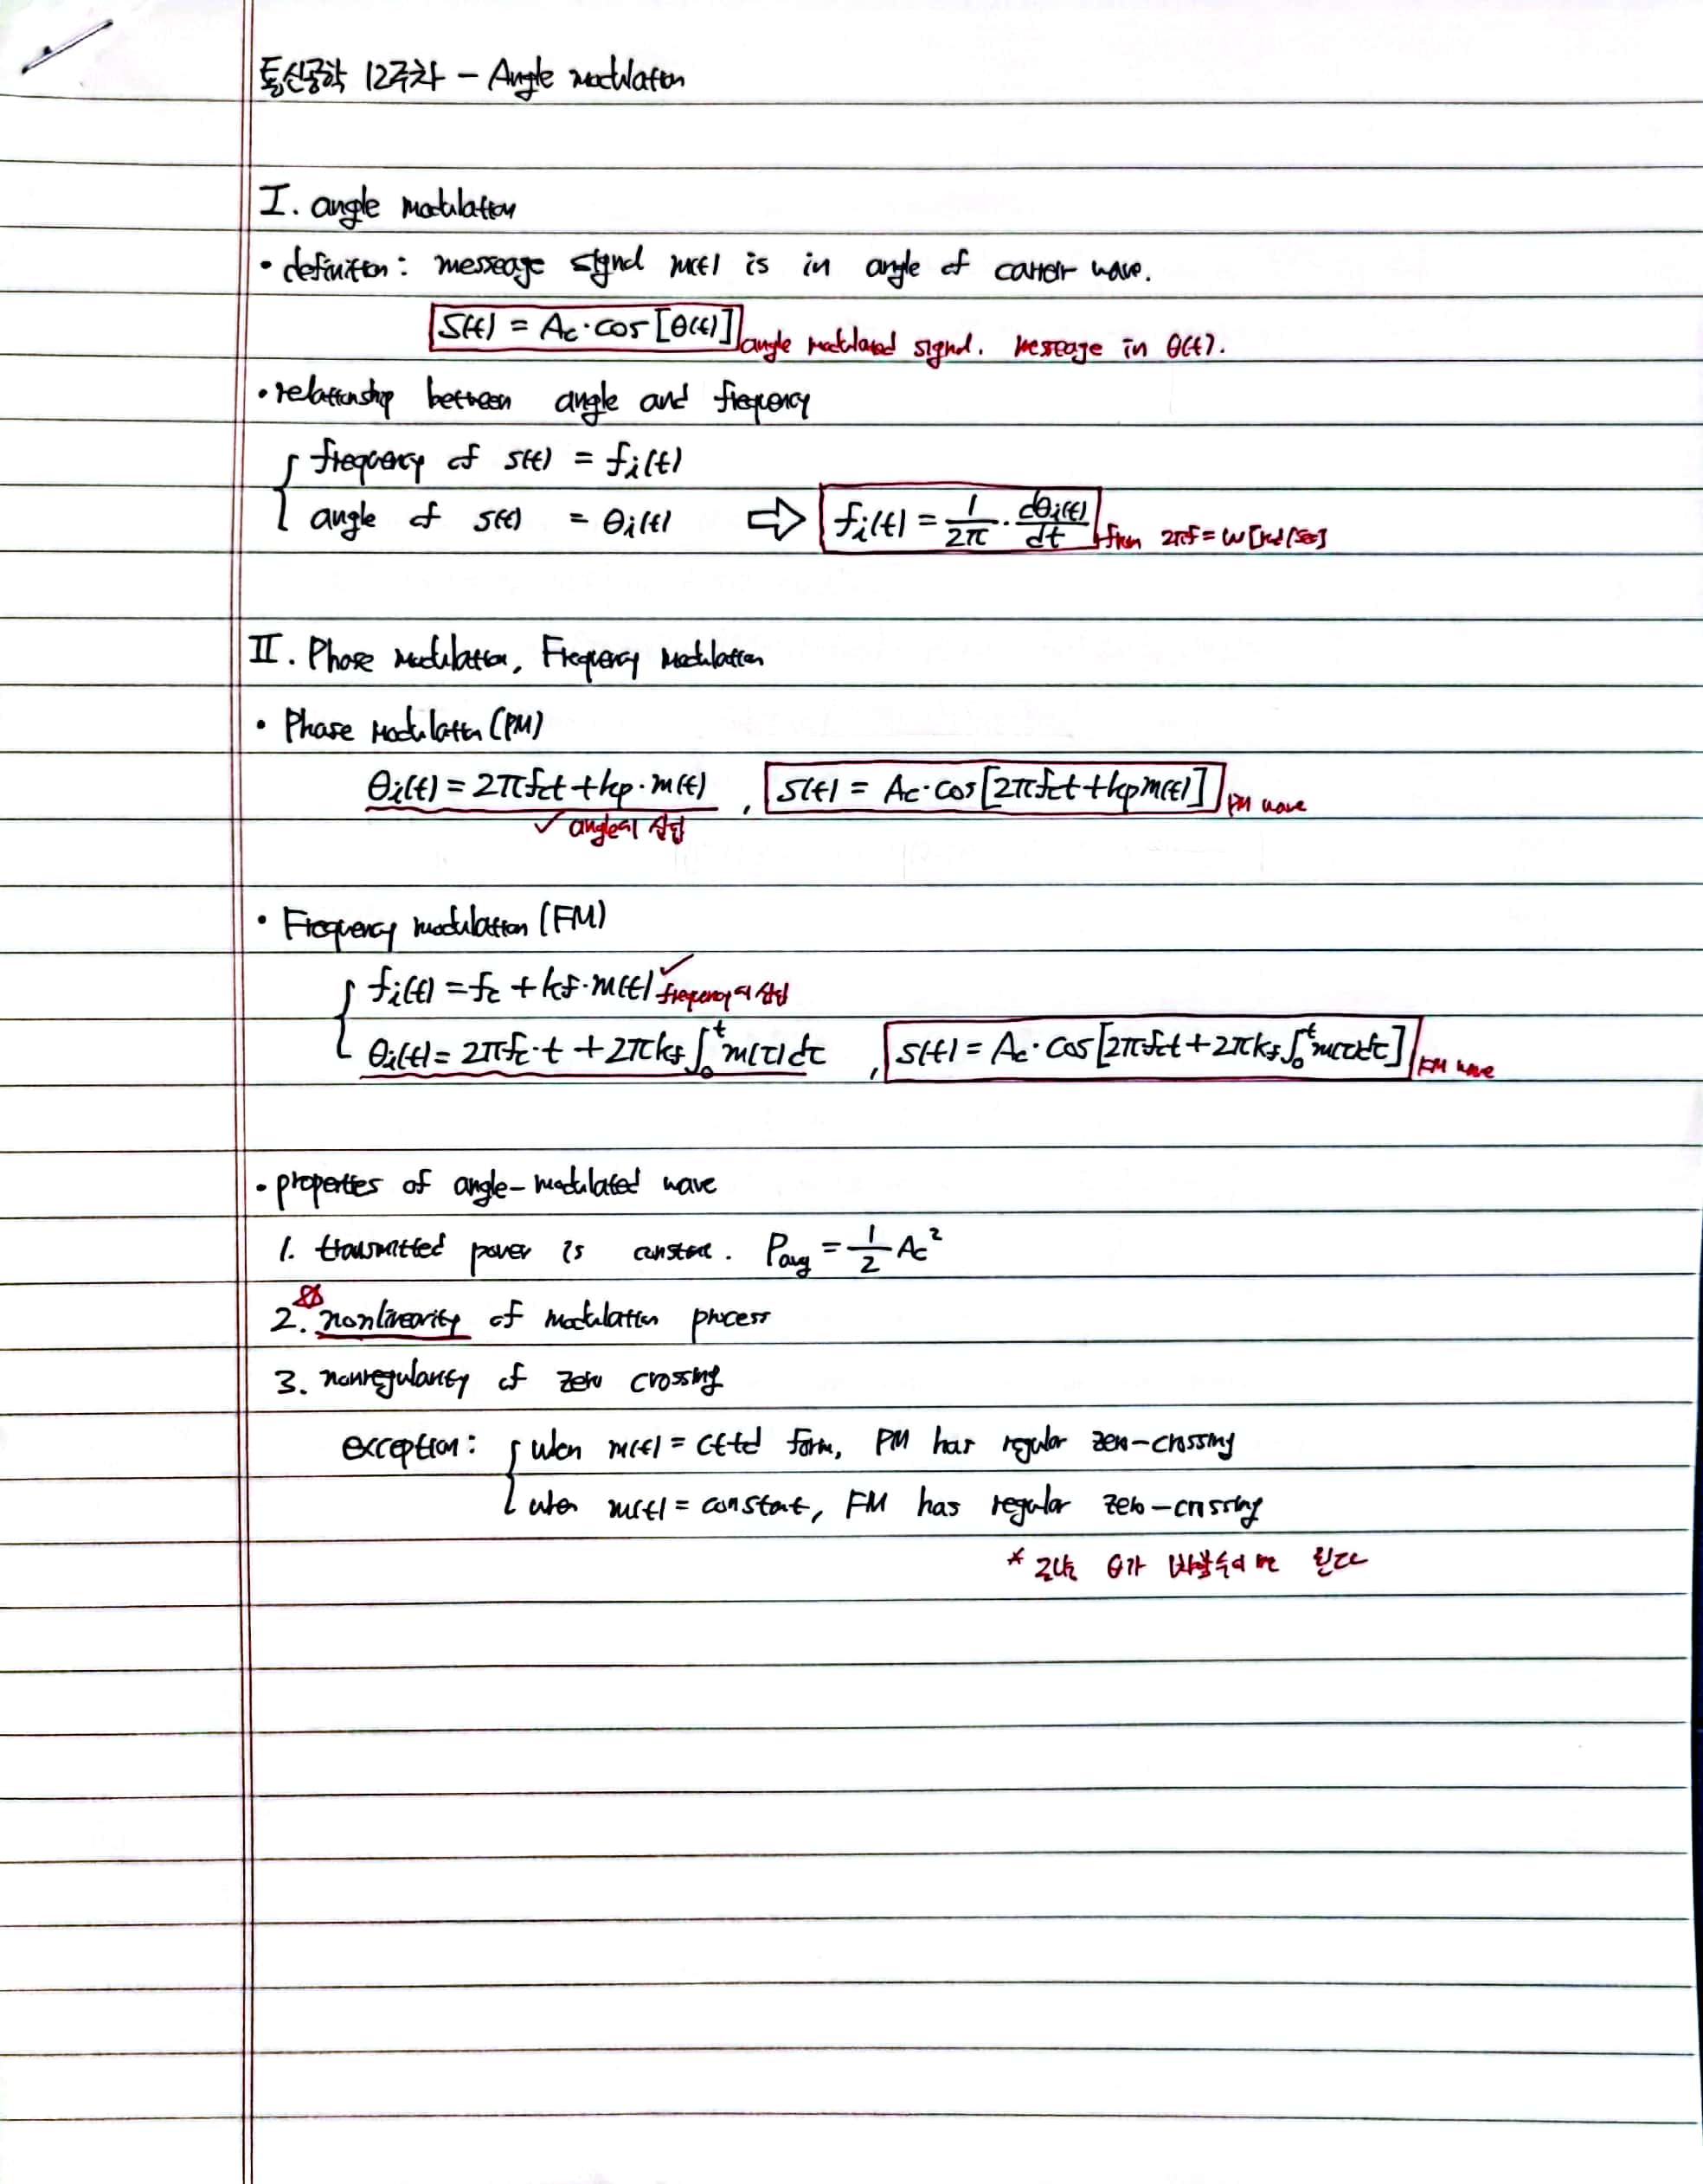 통신공학 12주차 - Angle modulation
I. angle modulation
• definition: messeage signal m(t) is in angle of carrier wave.
S(t) = Ac·cos[θ(t)] angle modulated signal. messeage in θ(t).
• relationship between angle and frequency
frequency of s(t) = fi(t)
angle of s(t) = θi(t) ⇨ fi(t) = 1/2π · dθi(t)/dt from 2πf = ω [rad/sec]
II. Phase modulation, Frequency modulation
• Phase modulation (PM)
θi(t) = 2πfct + kp·m(t) , s(t) = Ac·cos[2πfct + kpm(t)] PM wave
✓ angle에 삽입
• Frequency modulation (FM)
fi(t) = fc + kf·m(t) ✓ frequency에 삽입
θi(t) = 2πfc·t + 2πkf∫₀ᵗ m(τ)dτ , s(t) = Ac·cos[2πfct + 2πkf∫₀ᵗ m(τ)dτ] FM wave
• properties of angle-modulated wave
1. transmitted power is constant. Pavg = 1/2 Ac²
2. nonlinearity of modulation process
3. nonregularity of zero crossing
exception: when m(t) = ct+d form, PM has regular zero-crossing
when m(t) = constant, FM has regular zero-crossing
* θ가 된다